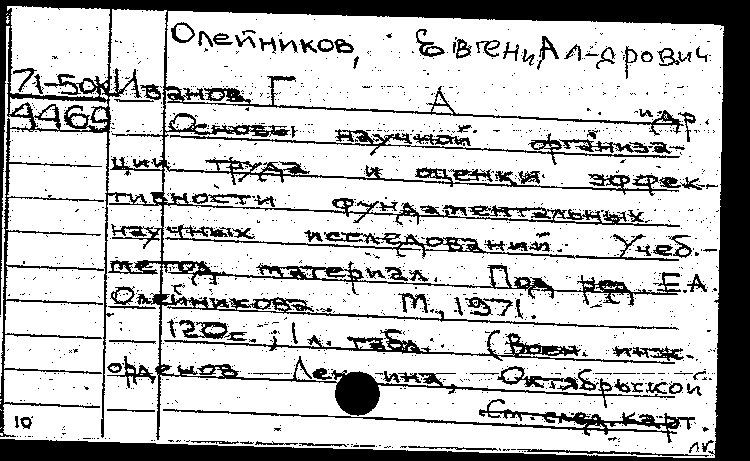 Олейников, Евгений Ал-дрович
71-50к Иванов, Г А и др.
4469 Основы научной организа-
ции труда и оценки эффек-
тивности фундаментальных
научных исследований. Учеб.-
метод материал. Под ред Е.А.
Олейникова. М., 1971.
120с.; 1 л. табл. (Воен. инж.
орденов Ленина, Октябрьской
См. след. карт.
10